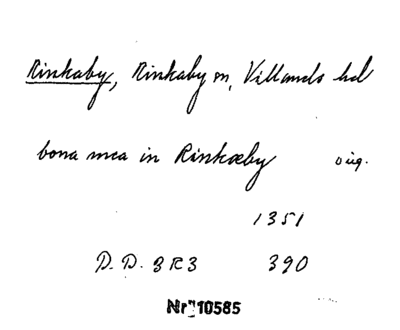 Rinkaby, Rinkaby sn, Villands hd
bona mea in Rinkæby orig.
1351
D.D. 3R3 390
Nr 10585